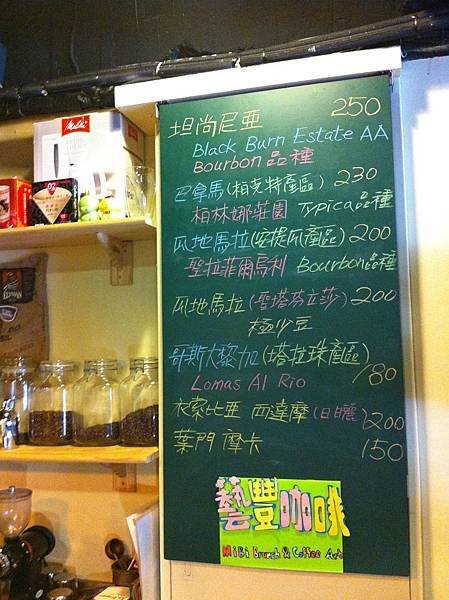 坦尚尼亞 250
Black Burn Estate AA
Bourbon 品種
巴拿馬(柏克特產區) 230
柏林娜莊園 Typica品種
瓜地馬拉(安提瓜產區) 200
聖拉菲爾烏利 Bourbon品種
瓜地馬拉(雪塔芬立莎) 200
極少豆
哥斯大黎加(塔拉珠產區)
Lomas Al Rio 180
衣索比亞 西達摩(日曬) 200
葉門 摩卡 150
藝豐咖啡
MiBi Brunch & Coffee Art
Melitta